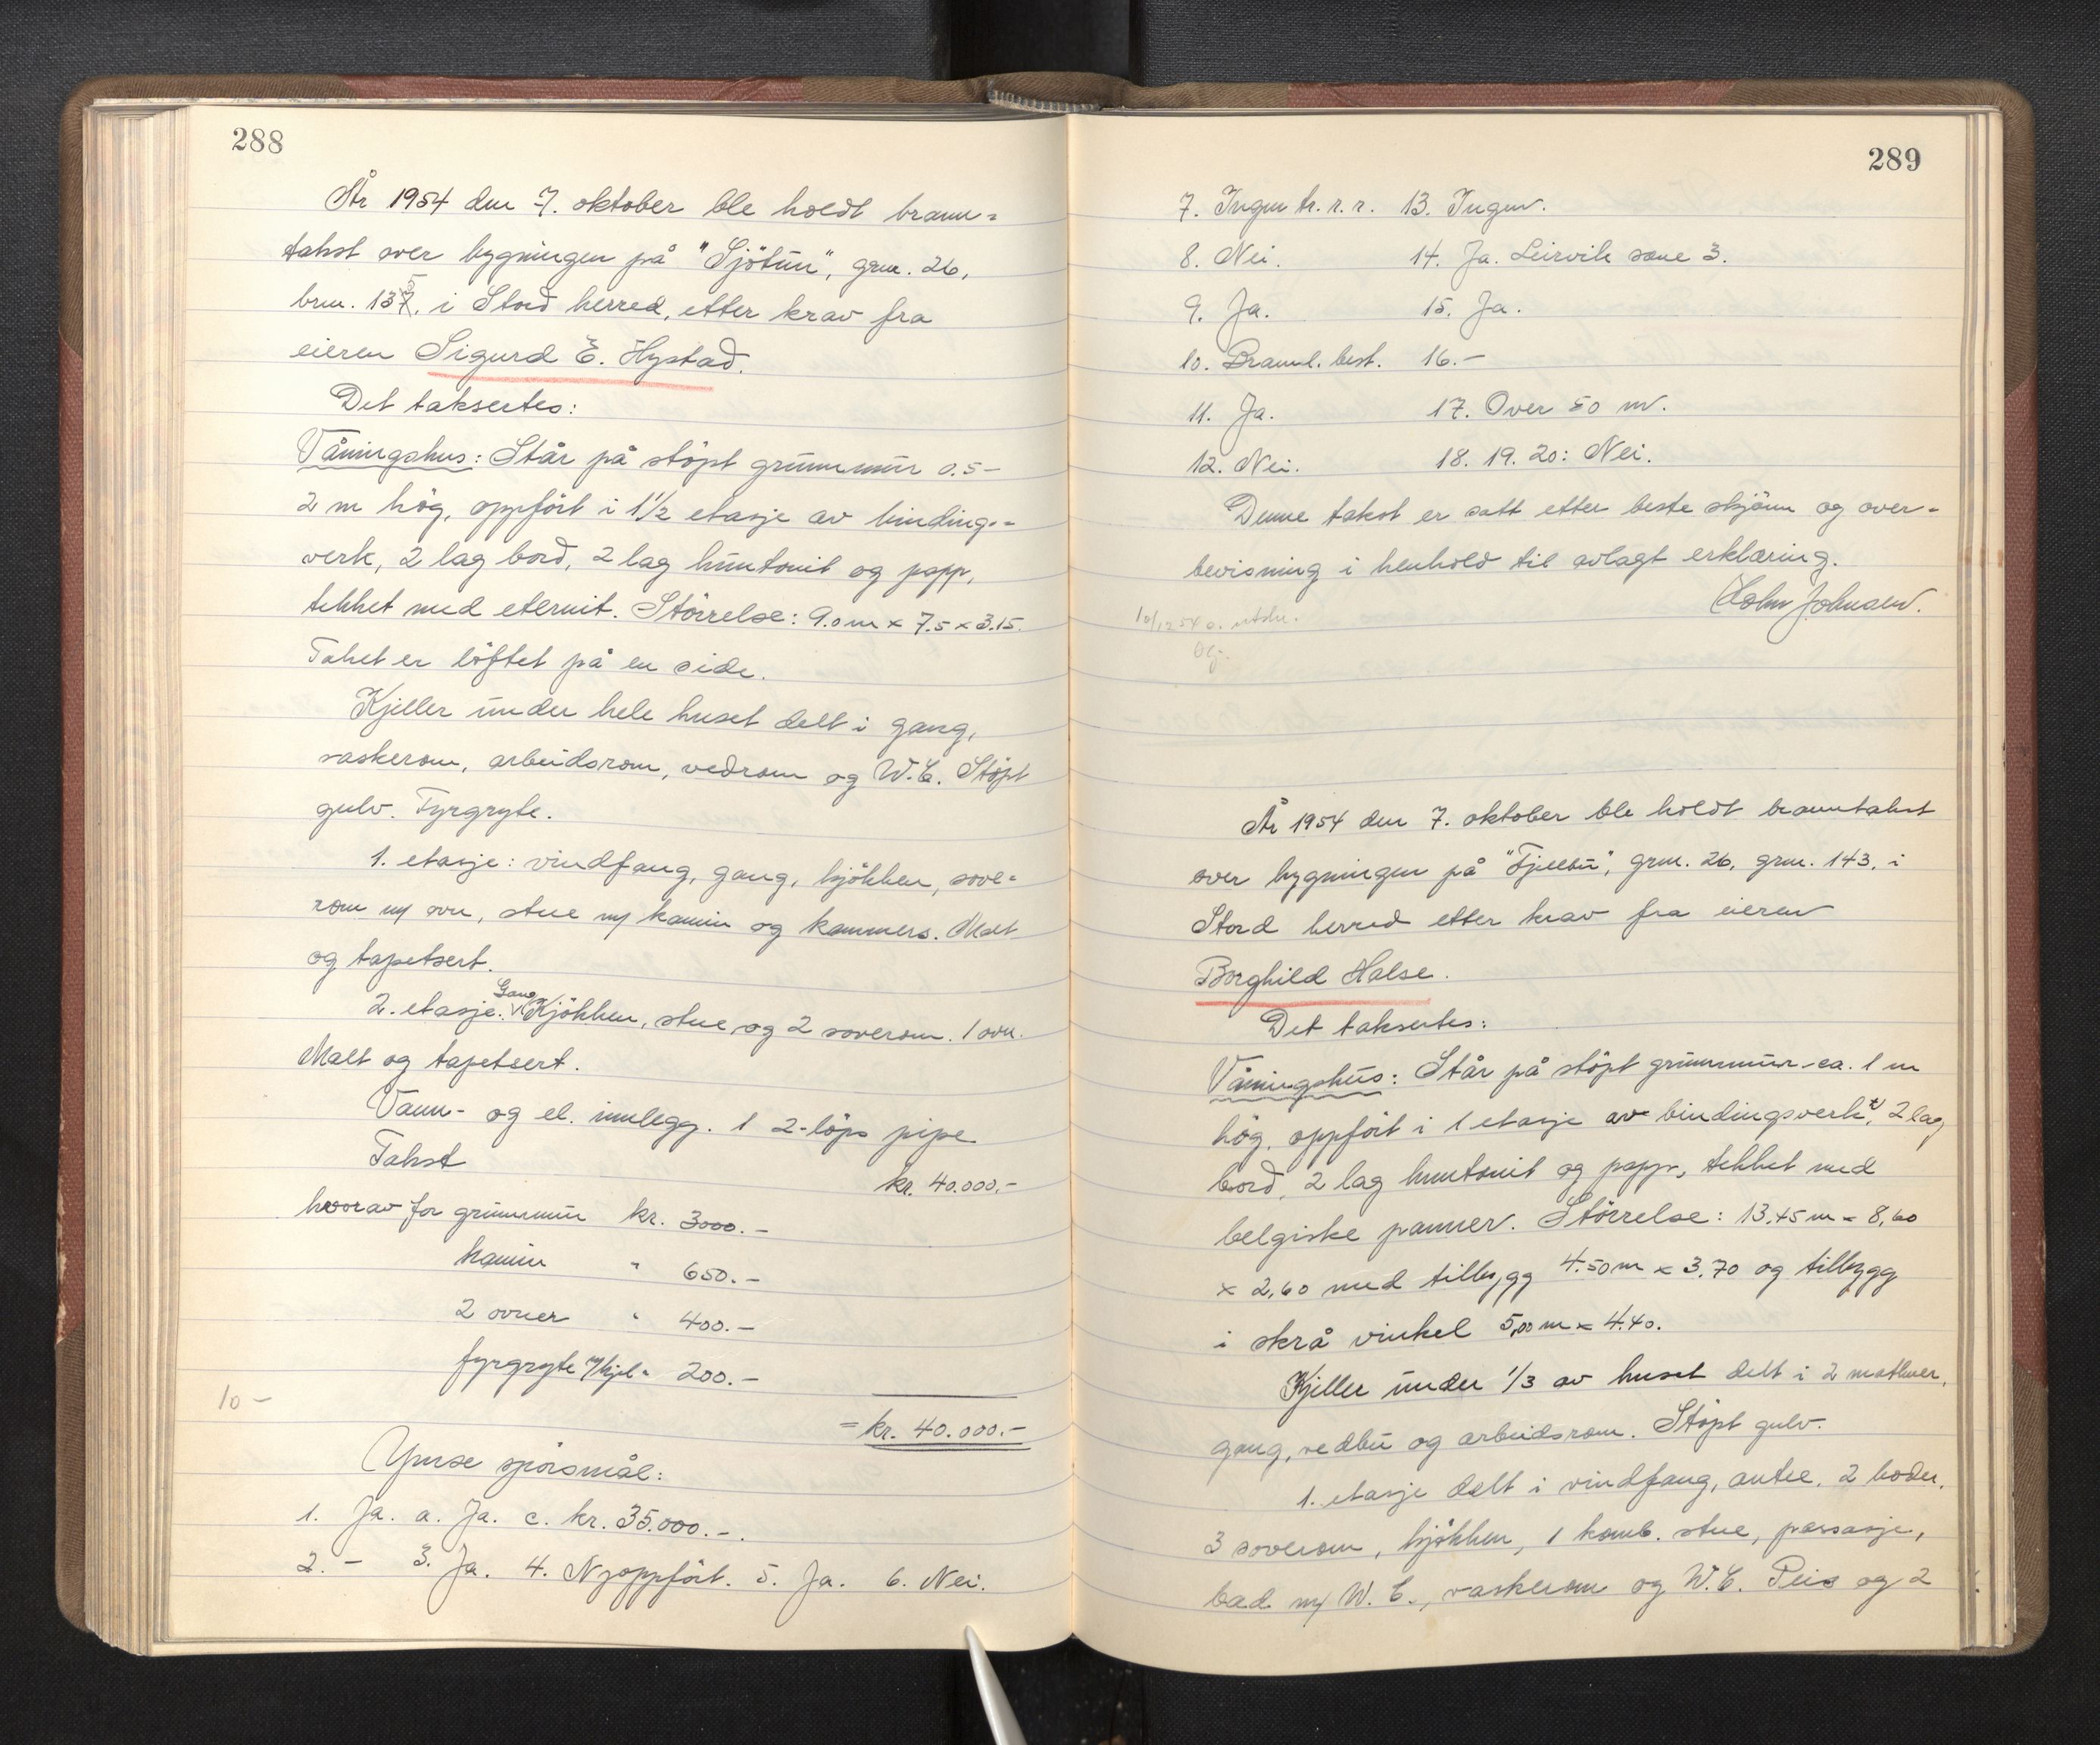 288
År 1954 den 7. oktober ble holdt brann-
takst over bygningen på "Sjötun", grn. 26,
brn. 135, i Stord herred, etter krav fra
eieren Sigurd E. Hystad.
Det taksertes:
Våningshus: Står på stöpt grunnmur 0.5-
2 m hög, oppfört i 1½ etasje av bindings-
verk, 2 lag bord, 2 lag huntonit og papp,
tekket med eternit. Störrelse: 9.0 m x 7.5 x 3.15.
Taket er löftet på en side.
Kjeller under hele huset delt i gang,
vaskerom, arbeidsrom, vedrom og W.C. Stöpt
gulv. Fyrgryte.
1. etasje: vindfang, gang, kjökken, sove-
rom m/ ovn, stue m/ kamin og kammers. Malt
og tapetsert.
2. etasje: Gang, Kjökken, stue og 2 soverom. 1 ovn.
Malt og tapetsert.
Vann- og el. innlegg. 1 2-löps pipe
Takst kr. 40.000.-
hvorav for grunnmur kr. 3000.-
kamin " 650.-
2 ovner " 400.-
fyrgryte m/kjel " 200.-
10 -
= kr. 40.000.-
Ymse spörsmål:
1. Ja. a. Ja. c. kr. 35.000.-.
2. - 3. Ja. 4. Nyoppfört. 5. Ja. 6. Nei.
289
7. Ingen tr. r. r. 13. Ingen.
8. Nei. 14. Ja. Leirvik sone 3.
9. Ja. 15. Ja.
10. Brannl. best. 16. -
11. Ja. 17. Over 50 m.
12. Nei. 18. 19. 20: Nei.
Denne takst er satt etter beste skjönn og over-
bevisning i henhold til avlagt erklæring.
Johnsen.
10/12 54 a. utskr.
År 1954 den 7. oktober ble holdt branntakst
over bygningen på "Fjellbu", grn. 26, grn. 143, i
Stord herred etter krav fra eieren
Borghild Halse.
Det taksertes:
Våningshus: Står på stöpt grunnmur ca. 1 m
hög, oppfört i 1 etasje av bindingsverk, 2 lag
bord, 2 lag huntonit og papp, tekket med
belgiske panner. Störrelse: 13.45 m x 8,60
x 2,60 med tilbygg 4.50 m x 3.70 og tilbygg
i skrå vinkel 5,00 m x 4.40.
Kjeller under 1/3 av huset delt i 2 matboer,
gang, vedbu og arbeidsrom. Stöpt gulv.
1. etasje delt i vindfang, antre, 2 boder,
3 soverom, kjökken, 1 komb. stue, passasje,
bad m/ W.C., vaskerom og W.C. Peis og 2